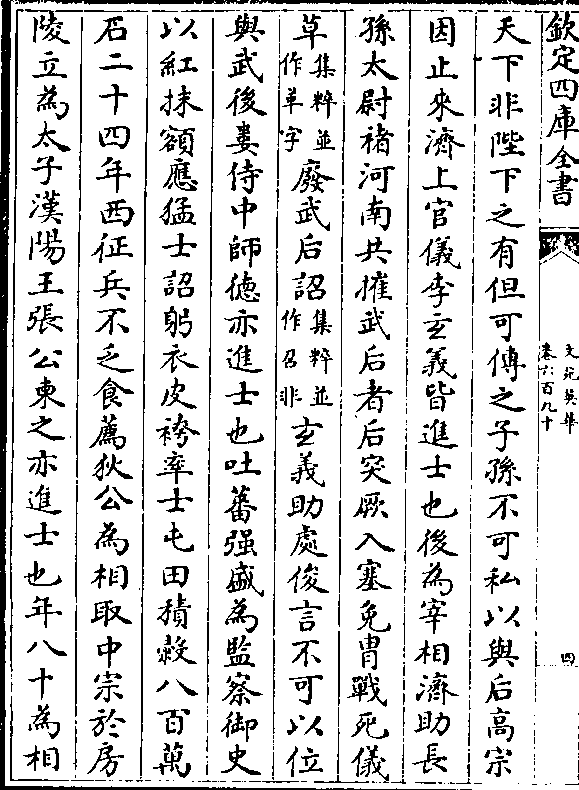 欽定四庫全書
文苑英華
卷六百九十
四
天下非陛下之有但可傳之子孫不可私以與后高宗
因止來濟上官儀李玄義皆進士也後為宰相濟助長
孫太尉褚河南共摧武后者后突厥入塞免胄戰死儀
草集粹並作革字廢武后詔集粹並作召非玄義助處俊言不可以位
與武後婁侍中師德亦進士也吐蕃强盛為監察御史
以紅抹額應猛士詔躬衣皮袴率士屯田積穀八百萬
石二十四年西征兵不乏食薦狄公為相取中宗於房
陵立為太子漢陽王張公柬之亦進士也年八十為相